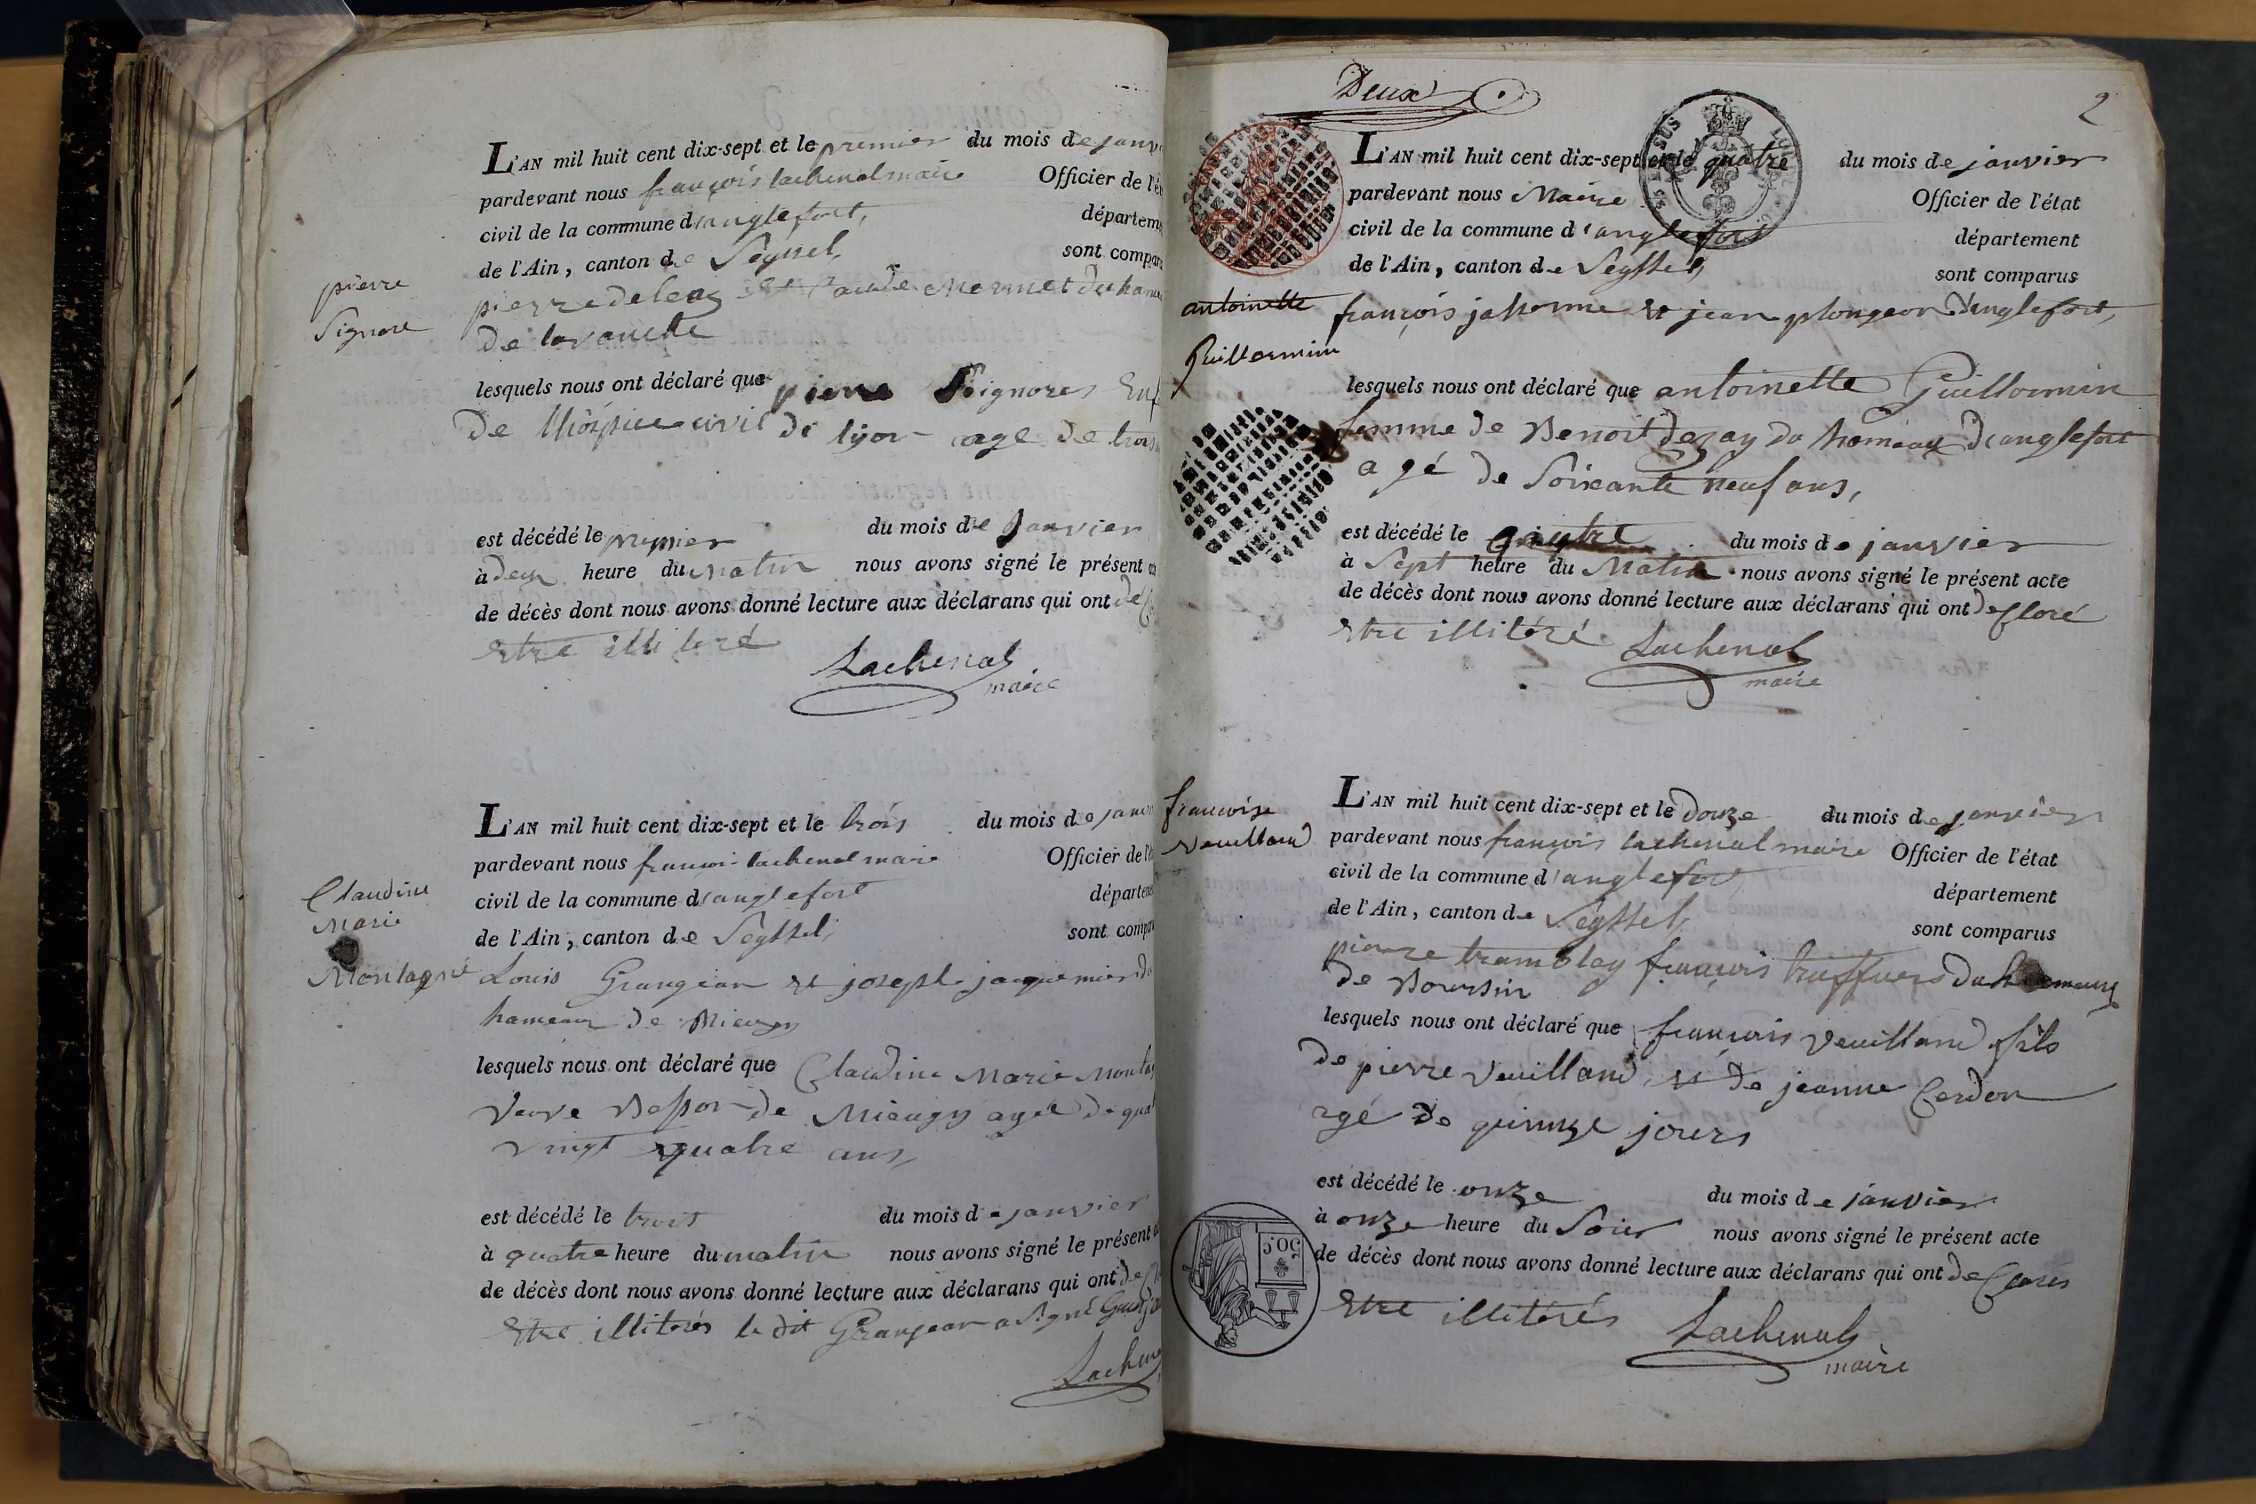 pierre
Signore
L'AN mil huit cent dix-sept et le premier du mois de janv
pardevant nous françois lachenal maire Officier de l'é
civil de la commune d'anglefort, départeme
de l'Ain, canton de Seyssel, sont compar
pierre deleaz et Mermet du
de lavanche
lesquels nous ont déclaré que pierre Signores Enf
De lhospice civil de lyon age de trois
est décédé le premier du mois de janvier
à deux heure du matin nous avons signé le présent
de décès dont nous avons donné lecture aux déclarans qui ont de
Etre illiteré
Lachenal
maire
Claudine
Marie
Montagné
L'AN mil huit cent dix-sept et le trois du mois de janv
pardevant nous françois lachenal maire Officier de l'é
civil de la commune d'anglefort départem
de l'Ain, canton de Seyssel, sont compa
Louis Grangean et joseph jacquemier du
hameau de Mieugy
lesquels nous ont déclaré que Claudine Marie Monta
Veuve Besson de Mieugy agée de qua
vingt quatre ans,
est décédé le trois du mois de janvier
à quatre heure du matin nous avons signé le présent a
de décès dont nous avons donné lecture aux déclarans qui ont de
Etre illiterés le dit Grangean a signé
Lachen
Deux
2
L'AN mil huit cent dix-sept et le quatre du mois de janvier
pardevant nous Maire Officier de l'état
civil de la commune d'anglefort département
de l'Ain, canton de Seyssel, sont comparus
antoinette
Guillermin
françois jasserme et jean plongeon D'anglefort,
lesquels nous ont déclaré que antoinette Guillermin
femme de Benoit dezay du hameau d'anglefort
agé de Soixante neuf ans,
est décédé le quatre du mois de janvier
à Sept heure du Matin nous avons signé le présent acte
de décès dont nous avons donné lecture aux déclarans qui ont decloré
Etre illitéré
Lachenal
maire
francoise
Veuilland
L'AN mil huit cent dix-sept et le Douze du mois de janvier
pardevant nous françois lachenal maire Officier de l'état
civil de la commune d'anglefort département
de l'Ain, canton de Seyssel, sont comparus
pierre tramblay françois du hameaux
de Boursin
lesquels nous ont déclaré que françois Veuilland fils
De pierre Veuilland, et de jeanne Cerdon
agé de quinze jours
est décédé le onze du mois de janvier
à onze heure du Soir nous avons signé le présent acte
de décès dont nous avons donné lecture aux déclarans qui ont declarés
Etre illitérés
Lachenal
maire
50.C